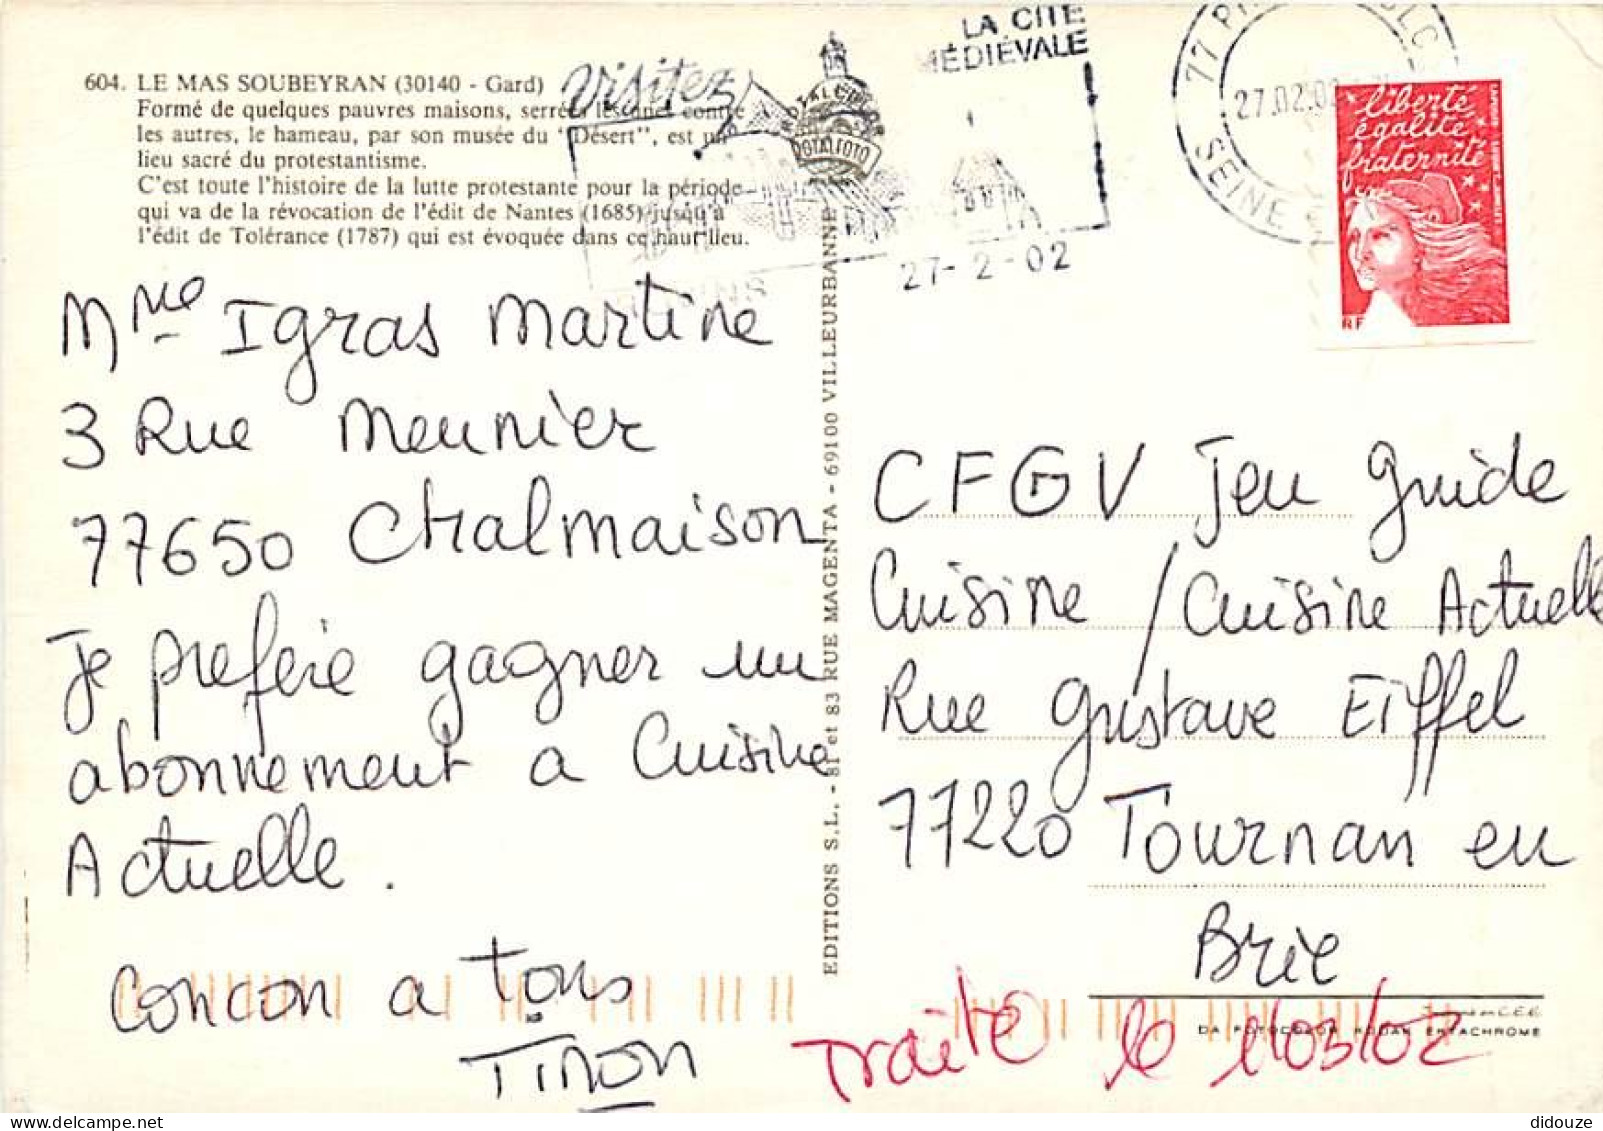 604. LE MAS SOUBEYRAN (30140 - Gard)
Formé de quelques pauvres maisons, serrées les unes contre
les autres, le hameau, par son musée du "Désert", est un
lieu sacré du protestantisme.
C'est toute l'histoire de la lutte protestante pour la période
qui va de la révocation de l'édit de Nantes (1685) jusqu'à
l'édit de Tolérance (1787) qui est évoquée dans ce haut lieu.
Visitez
LA CITE
MÉDIÉVALE
27-2-02
77
27.02.02
SEINE
liberté
égalité
fraternité
RF
Mme Igras Martine
3 Rue Meunier
77650 Chalmaison
Je prefere gagner un
abonnement a Cuisine
Actuelle.
Concon a tous
Tinon
EDITIONS S.L. - 81 et 83 RUE MAGENTA - 69100 VILLEURBANNE
CFGV Jeu Guide
Cuisine / Cuisine Actuelle
Rue Gustave Eiffel
77220 Tournan en
Brie
DA FOTOCOLOR KODAK EKTACHROME
Traité le 1/03/02
didouze